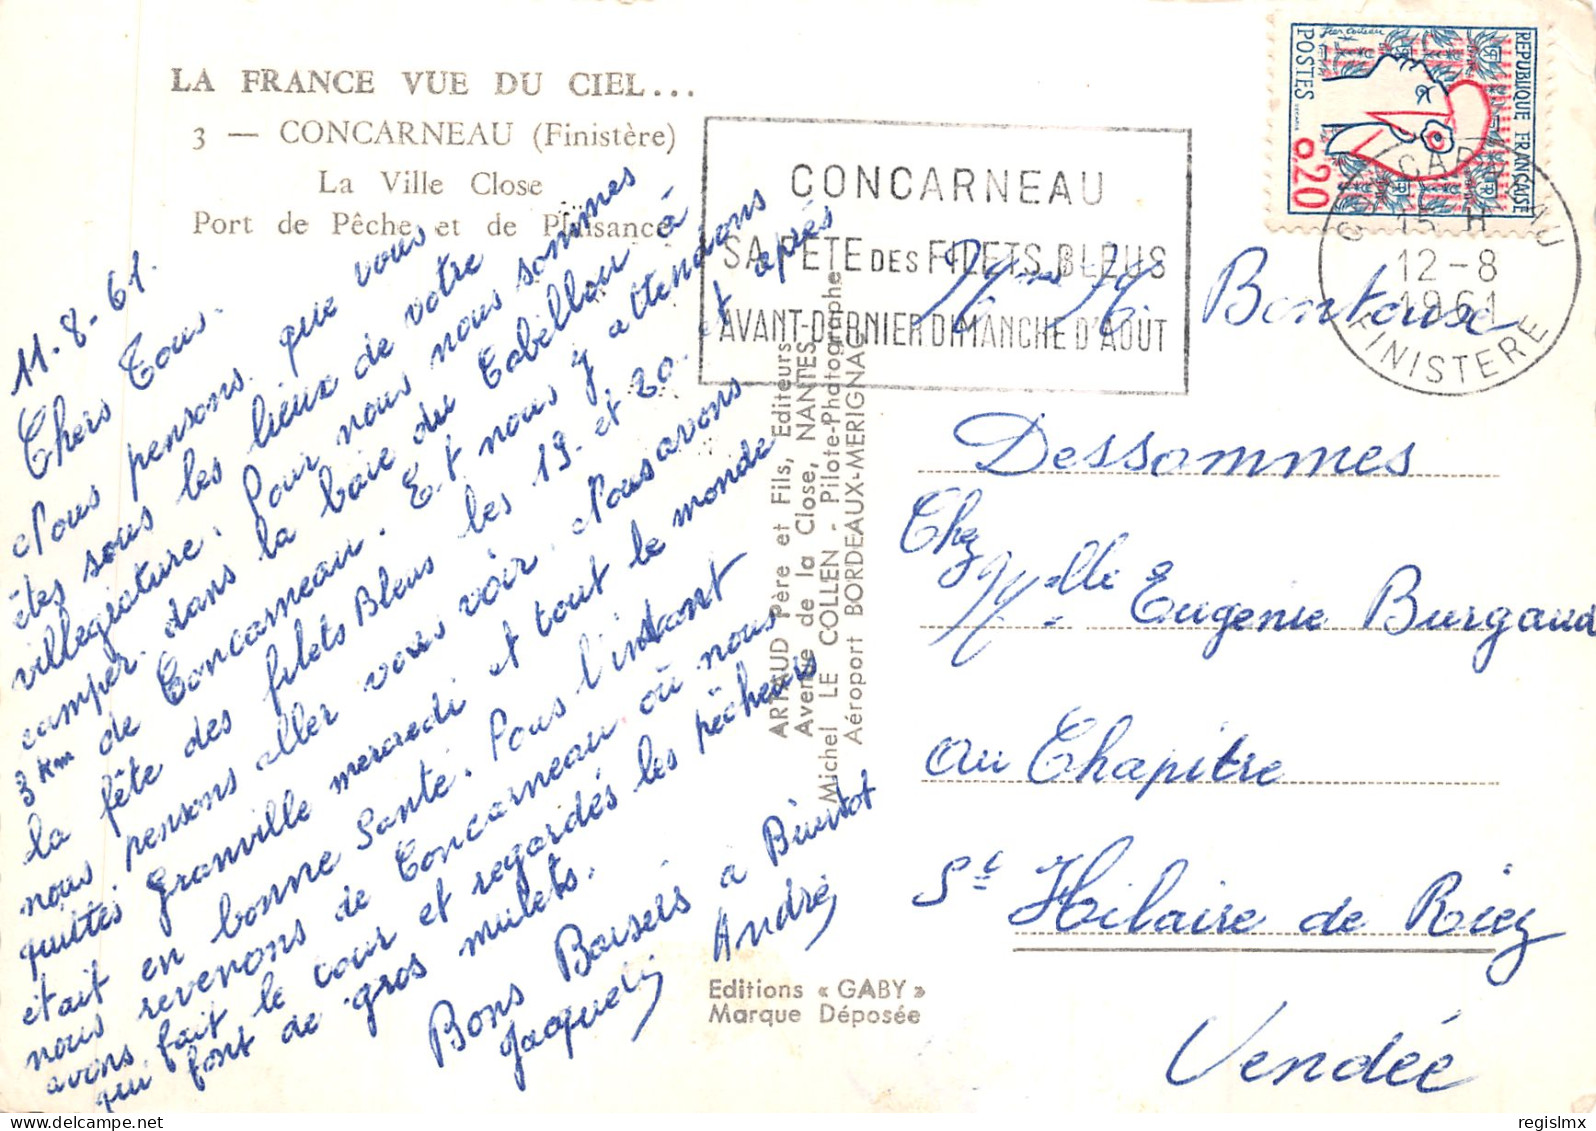 LA FRANCE VUE DU CIEL...
3 — CONCARNEAU (Finistère)
La Ville Close
Port de Pêche et de Plaisance
11-8-61.
Chers Tous.
Nous pensons que vous
êtes sous les lieux de votre
villegiature. Pour nous nous sommes
camper dans la baie du Cabellou à
3 km de Concarneau. Et nous y attendons
la fête des filets Bleus les 19 et 20 et après
nous pensons aller vous voir. Nous avons
quittés Granville mercredi et tout le monde
était en bonne Santé. Pour l'instant
nous revenons de Concarneau où nous
avons fait le tour et regardés les pêcheurs
qui font de gros mulets.
Bons Baisers a Bientot
André
Jacquelin
ARTAUD Père et Fils, Editeurs
Avenue de la Close, NANTES
Michel LE COLLEN - Pilote-Photographe
Aéroport BORDEAUX-MERIGNAC
Editions « GABY »
Marque Déposée
CONCARNEAU
SA FÊTE DES FILETS BLEUS
AVANT-DERNIER DIMANCHE D'AOUT
REPUBLIQUE FRANÇAISE
POSTES
0,20
CONCARNEAU
15 H
12-8
1961
FINISTERE
Dessommes
Chez Melle Eugenie Burgaud
au Chapitre
St Hilaire de Riez
Vendée
regislmx